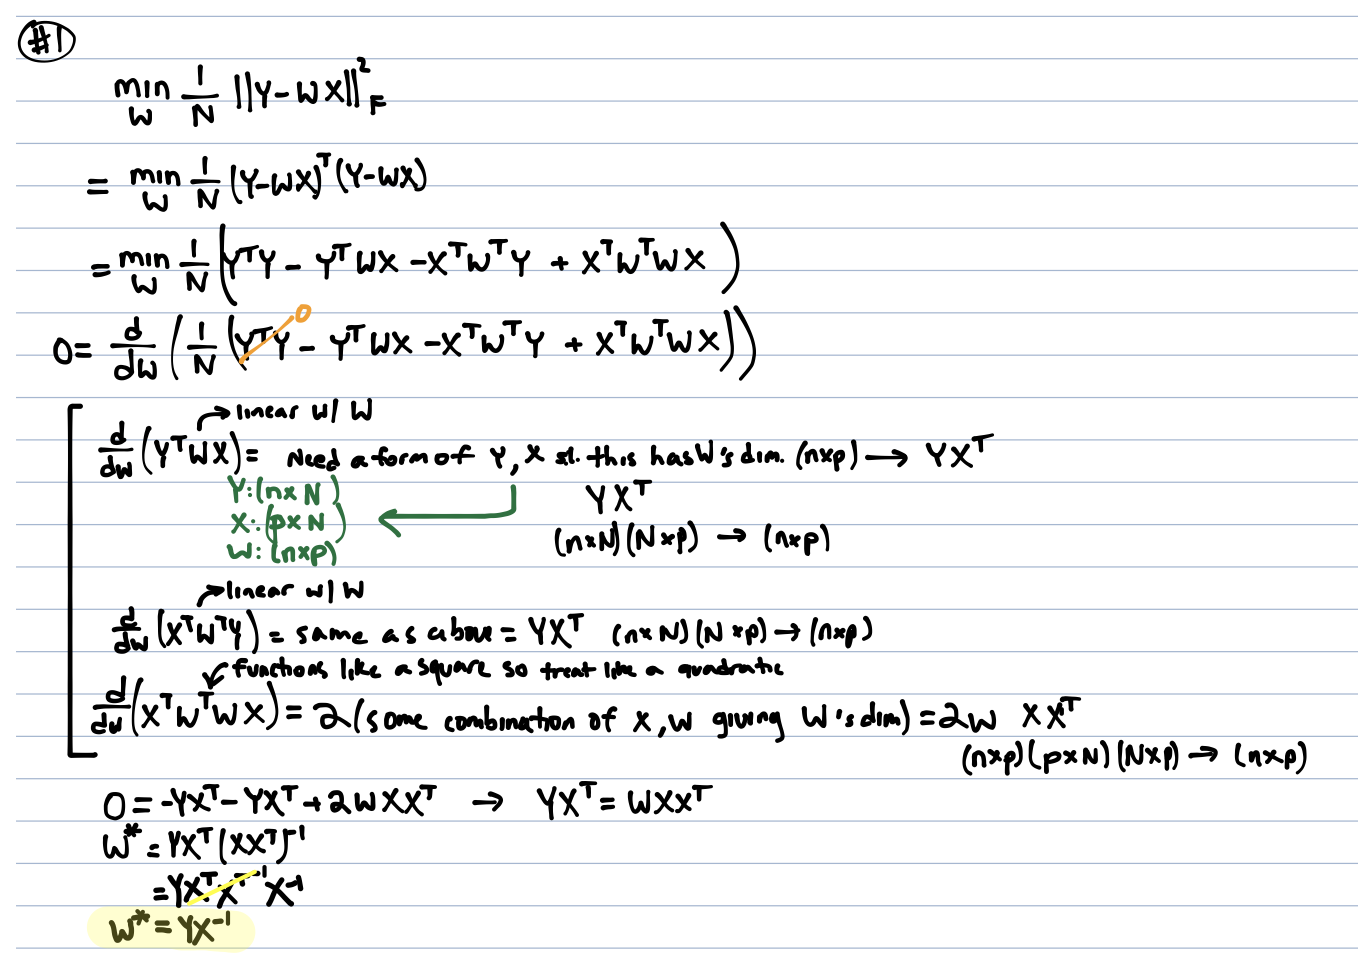 #1
min_W 1/N ||Y-WX||²_F
= min_W 1/N (Y-WX)ᵀ(Y-WX)
= min_W 1/N (YᵀY - YᵀWX - XᵀWᵀY + XᵀWᵀWX)
0 = d/dW (1/N (YᵀY - YᵀWX - XᵀWᵀY + XᵀWᵀWX))
0
→ linear w/ W
d/dW (YᵀWX) = Need a form of Y, X st. this has W's dim. (n×p) → YXᵀ
Y: (n×N)
YXᵀ
X: (p×N)
(n×N)(N×p) → (n×p)
W: (n×p)
→ linear w/ W
d/dW (XᵀWᵀY) = same as above = YXᵀ (n×N)(N×p) → (n×p)
functions like a square so treat like a quadratic
d/dW (XᵀWᵀWX) = 2(some combination of X, W giving W's dim) = 2W XXᵀ
(n×p)(p×N)(N×p) → (n×p)
0 = -YXᵀ - YXᵀ + 2WXXᵀ → YXᵀ = WXXᵀ
W* = YXᵀ(XXᵀ)⁻¹
= YXᵀXᵀ⁻¹X⁻¹
W* = YX⁻¹